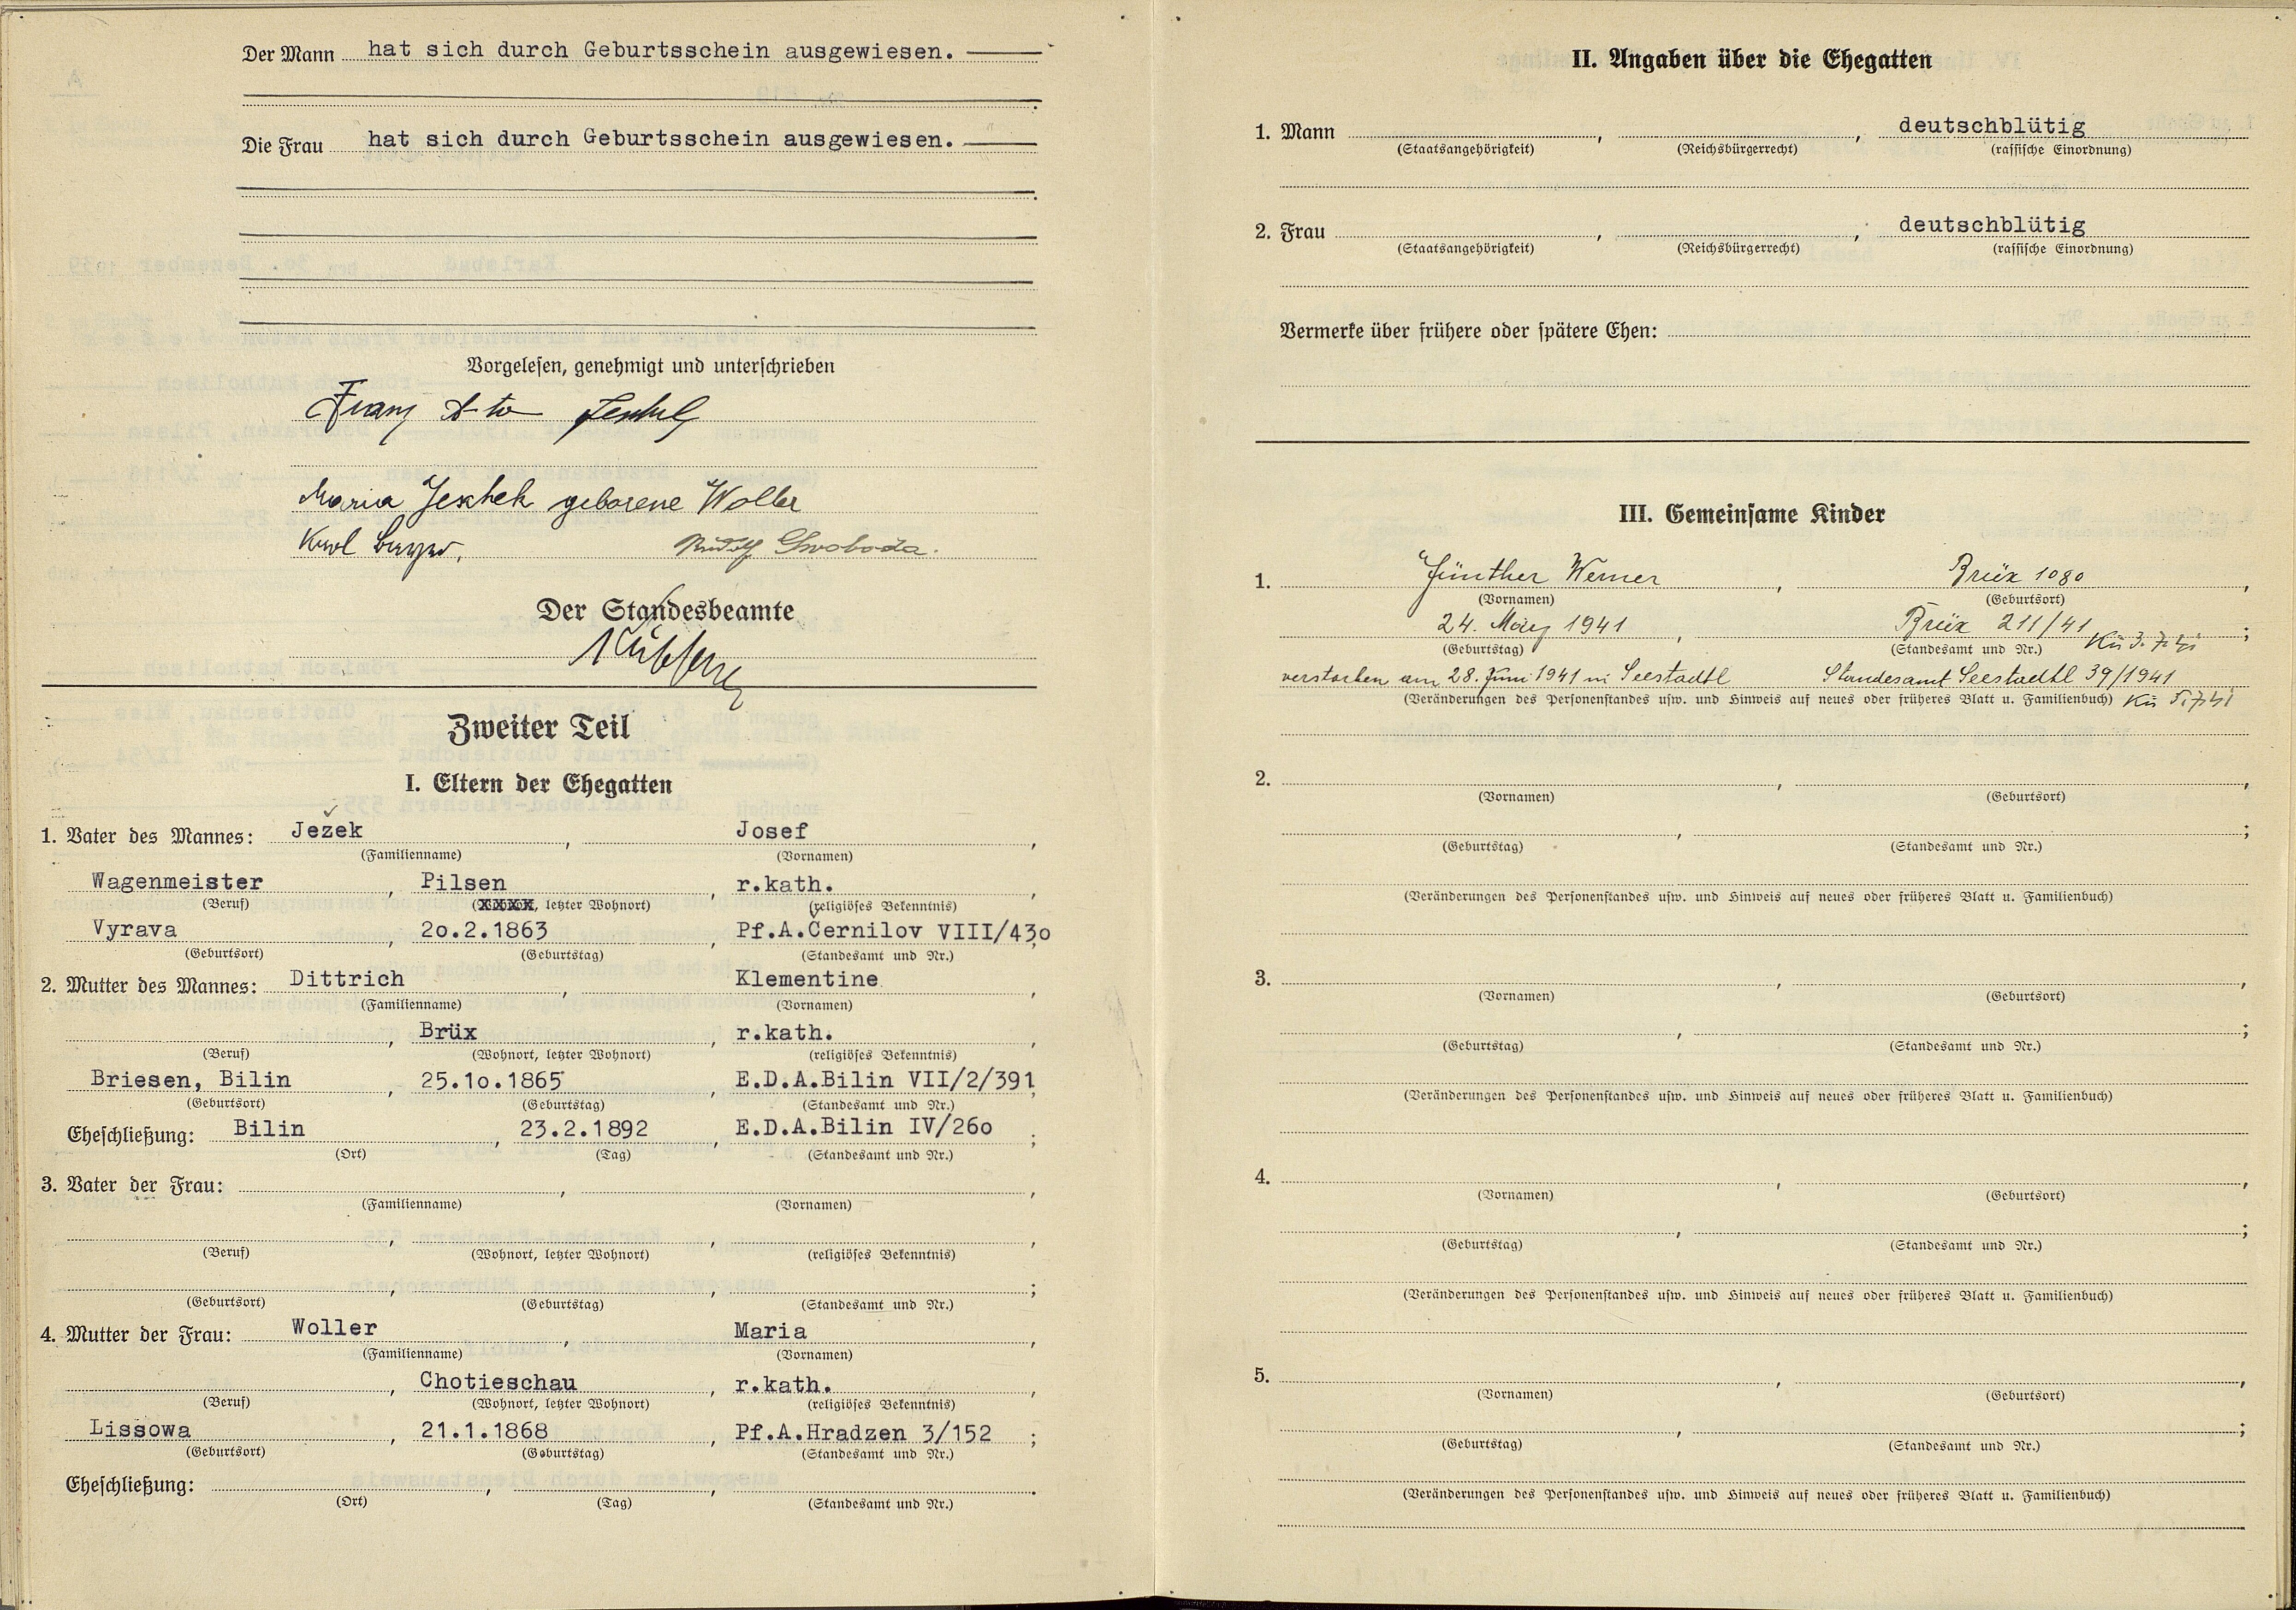 Der Mann hat sich durch Geburtsschein ausgewiesen.
Die Frau hat sich durch Geburtsschein ausgewiesen.
Vorgelesen, genehmigt und unterschrieben
Franz
Maria Jeschek geborene Woller
Karl Rudolf Swoboda.
Der Standesbeamte
Zweiter Teil
I. Eltern der Ehegatten
1. Vater des Mannes: Ježek, Josef,
(Familienname) (Vornamen)
Wagenmeister, Pilsen, r.kath.,
(Beruf) (xxxx, letzter Wohnort) (religiöses Bekenntnis)
Vyrava, 2o.2.1863, Pf.A.Černilov VIII/43o,
(Geburtsort) (Geburtstag) (Standesamt und Nr.)
2. Mutter des Mannes: Dittrich, Klementine,
(Familienname) (Vornamen)
, Brüx, r.kath.,
(Beruf) (Wohnort, letzter Wohnort) (religiöses Bekenntnis)
Briesen, Bilin, 25.1o.1865, E.D.A.Bilin VII/2/391;
(Geburtsort) (Geburtstag) (Standesamt und Nr.)
Eheschließung: Bilin, 23.2.1892, E.D.A.Bilin IV/26o;
(Ort) (Tag) (Standesamt und Nr.)
3. Vater der Frau: , ,
(Familienname) (Vornamen)
, , ,
(Beruf) (Wohnort, letzter Wohnort) (religiöses Bekenntnis)
, , ;
(Geburtsort) (Geburtstag) (Standesamt und Nr.)
4. Mutter der Frau: Woller, Maria,
(Familienname) (Vornamen)
, Chotieschau, r.kath.,
(Beruf) (Wohnort, letzter Wohnort) (religiöses Bekenntnis)
Lissowa, 21.1.1868, Pf.A.Hradzen 3/152;
(Geburtsort) (Geburtstag) (Standesamt und Nr.)
Eheschließung: , , .
(Ort) (Tag) (Standesamt und Nr.)
II. Angaben über die Ehegatten
1. Mann , , deutschblütig
(Staatsangehörigkeit) (Reichsbürgerrecht) (rassische Einordnung)
2. Frau , , deutschblütig
(Staatsangehörigkeit) (Reichsbürgerrecht) (rassische Einordnung)
Vermerke über frühere oder spätere Ehen:
III. Gemeinsame Kinder
1. Günther Werner, Brüx 1080,
(Vornamen) (Geburtsort)
24. März 1941, Brüx 211/41;
(Geburtstag) (Standesamt und Nr.) Kü 3.7.41
verstorben am 28. Juni 1941 in Seestadtl Standesamt Seestadtl 39/1941
(Veränderungen des Personenstandes usw. und Hinweis auf neues oder früheres Blatt u. Familienbuch) Kü 5.7.41
2. , ,
(Vornamen) (Geburtsort)
, ;
(Geburtstag) (Standesamt und Nr.)
(Veränderungen des Personenstandes usw. und Hinweis auf neues oder früheres Blatt u. Familienbuch)
3. , ,
(Vornamen) (Geburtsort)
, ;
(Geburtstag) (Standesamt und Nr.)
(Veränderungen des Personenstandes usw. und Hinweis auf neues oder früheres Blatt u. Familienbuch)
4. , ,
(Vornamen) (Geburtsort)
, ;
(Geburtstag) (Standesamt und Nr.)
(Veränderungen des Personenstandes usw. und Hinweis auf neues oder früheres Blatt u. Familienbuch)
5. , ,
(Vornamen) (Geburtsort)
, ;
(Geburtstag) (Standesamt und Nr.)
(Veränderungen des Personenstandes usw. und Hinweis auf neues oder früheres Blatt u. Familienbuch)